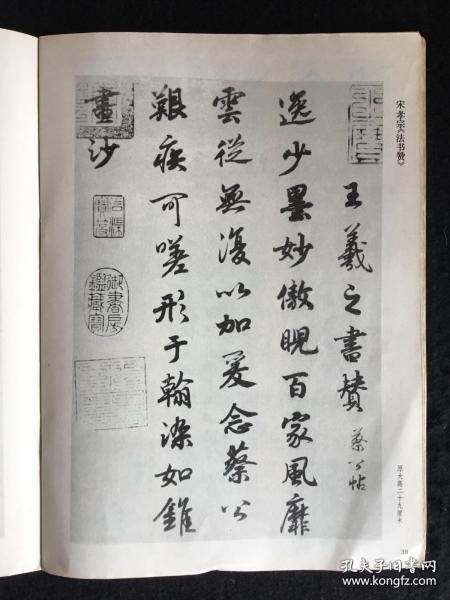 宋孝宗《法书赞》
王羲之書贊 蔡公帖
逸少墨妙傲睨百家風靡
雲從無復以加爰念蔡公
艱疾可嗟形于翰染如錐
畫沙
御書房鑑藏寶
原大高二十九厘米
38
孔夫子旧书网
www.kongfz.com